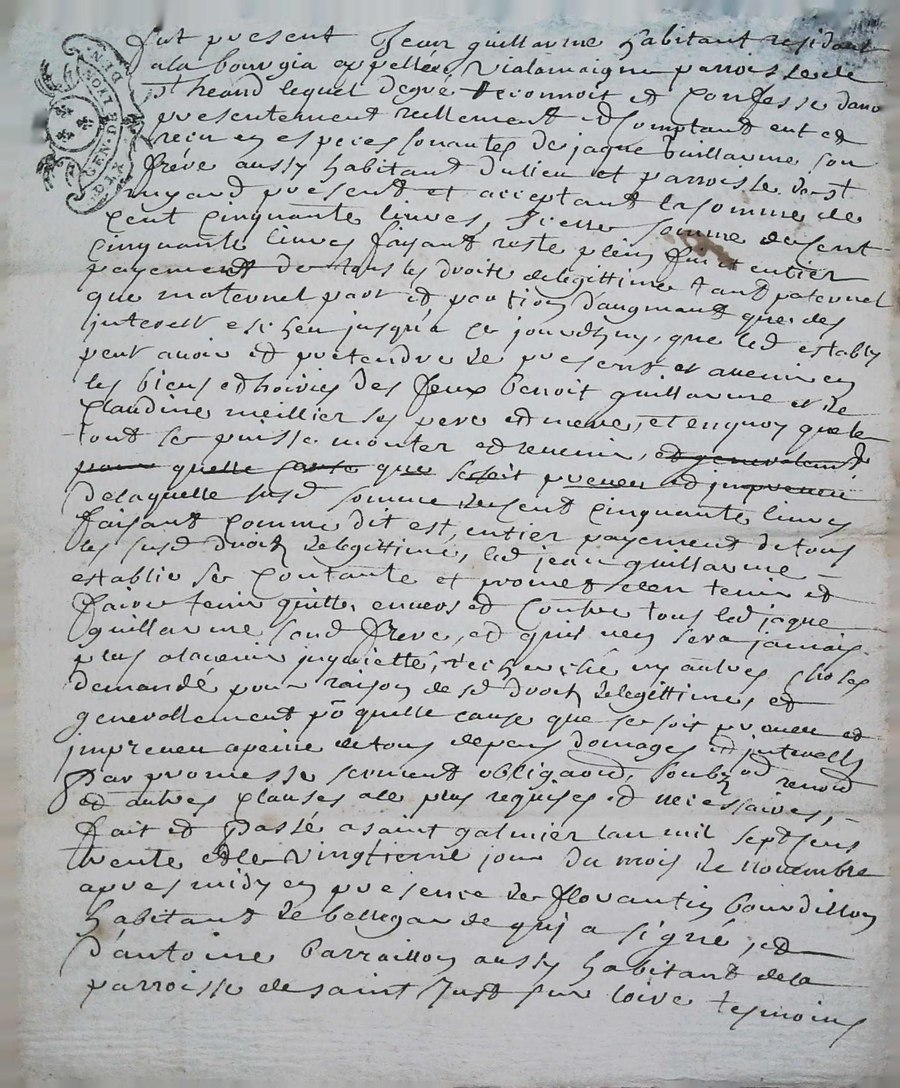 GEN. DE LYON
DIX DEN.
fut present Jean guillaume habitant residant
a la bourgia appellee vialamaigne parroisse de
st heand lequel de gré reconnoit et confesse davoir
presentement reellement et comptant eut et
receu en especes sonantes de jaque guillaume son
frere aussy habitant du lieu et parroisse de st
present et acceptant la somme de
cent cinquante livres, Icelle somme de cent
cinquante livres faisant reste plein fin et entier
payement de tous les droits de legittime tant paternel
que maternel part et portion daugmant que des
interest escheu jusqu'a ce jourdhuy, que led establi
peut avoir et pretendre de present et avenir en
les biens et hoiries des feux benoit guillaume et de
Claudine meillier ses pere et mere, et en quoy que le
tout se puisse monter et revenir, et generalement
pour quelle cause que se soit preveu et impreveu
de laquelle susd somme de cent cinquante livres
faisant comme dit est, entier payement de tous
les susd droits de legittime, led jean guillaume
establi se contante et promet den tenir et
faire tenir quitte envers et contre tous led jaque
guillaume sond frere, et quil nen sera jamais
plus a lavenir inquietté, recherché ny autres choses
demandé pour raison de sd droits de legittime, et
generallement po quelle cause que se soit preveu et
impreveu a peine de tous depens domages et interests
Par promesse serment obligaon, soubz et renon
et autres clauses a le plus requises et necessaires,
fait et passé a saint galmier lan mil sept cens
trente et le vingtieme jour du mois de novembre
apres midy en presence de florantin bourdillon
habitant de bellegarde qui a signé, et
d'antoine barraillon aussy habitant de la
parroisse de saint Just sur loire tesmoins